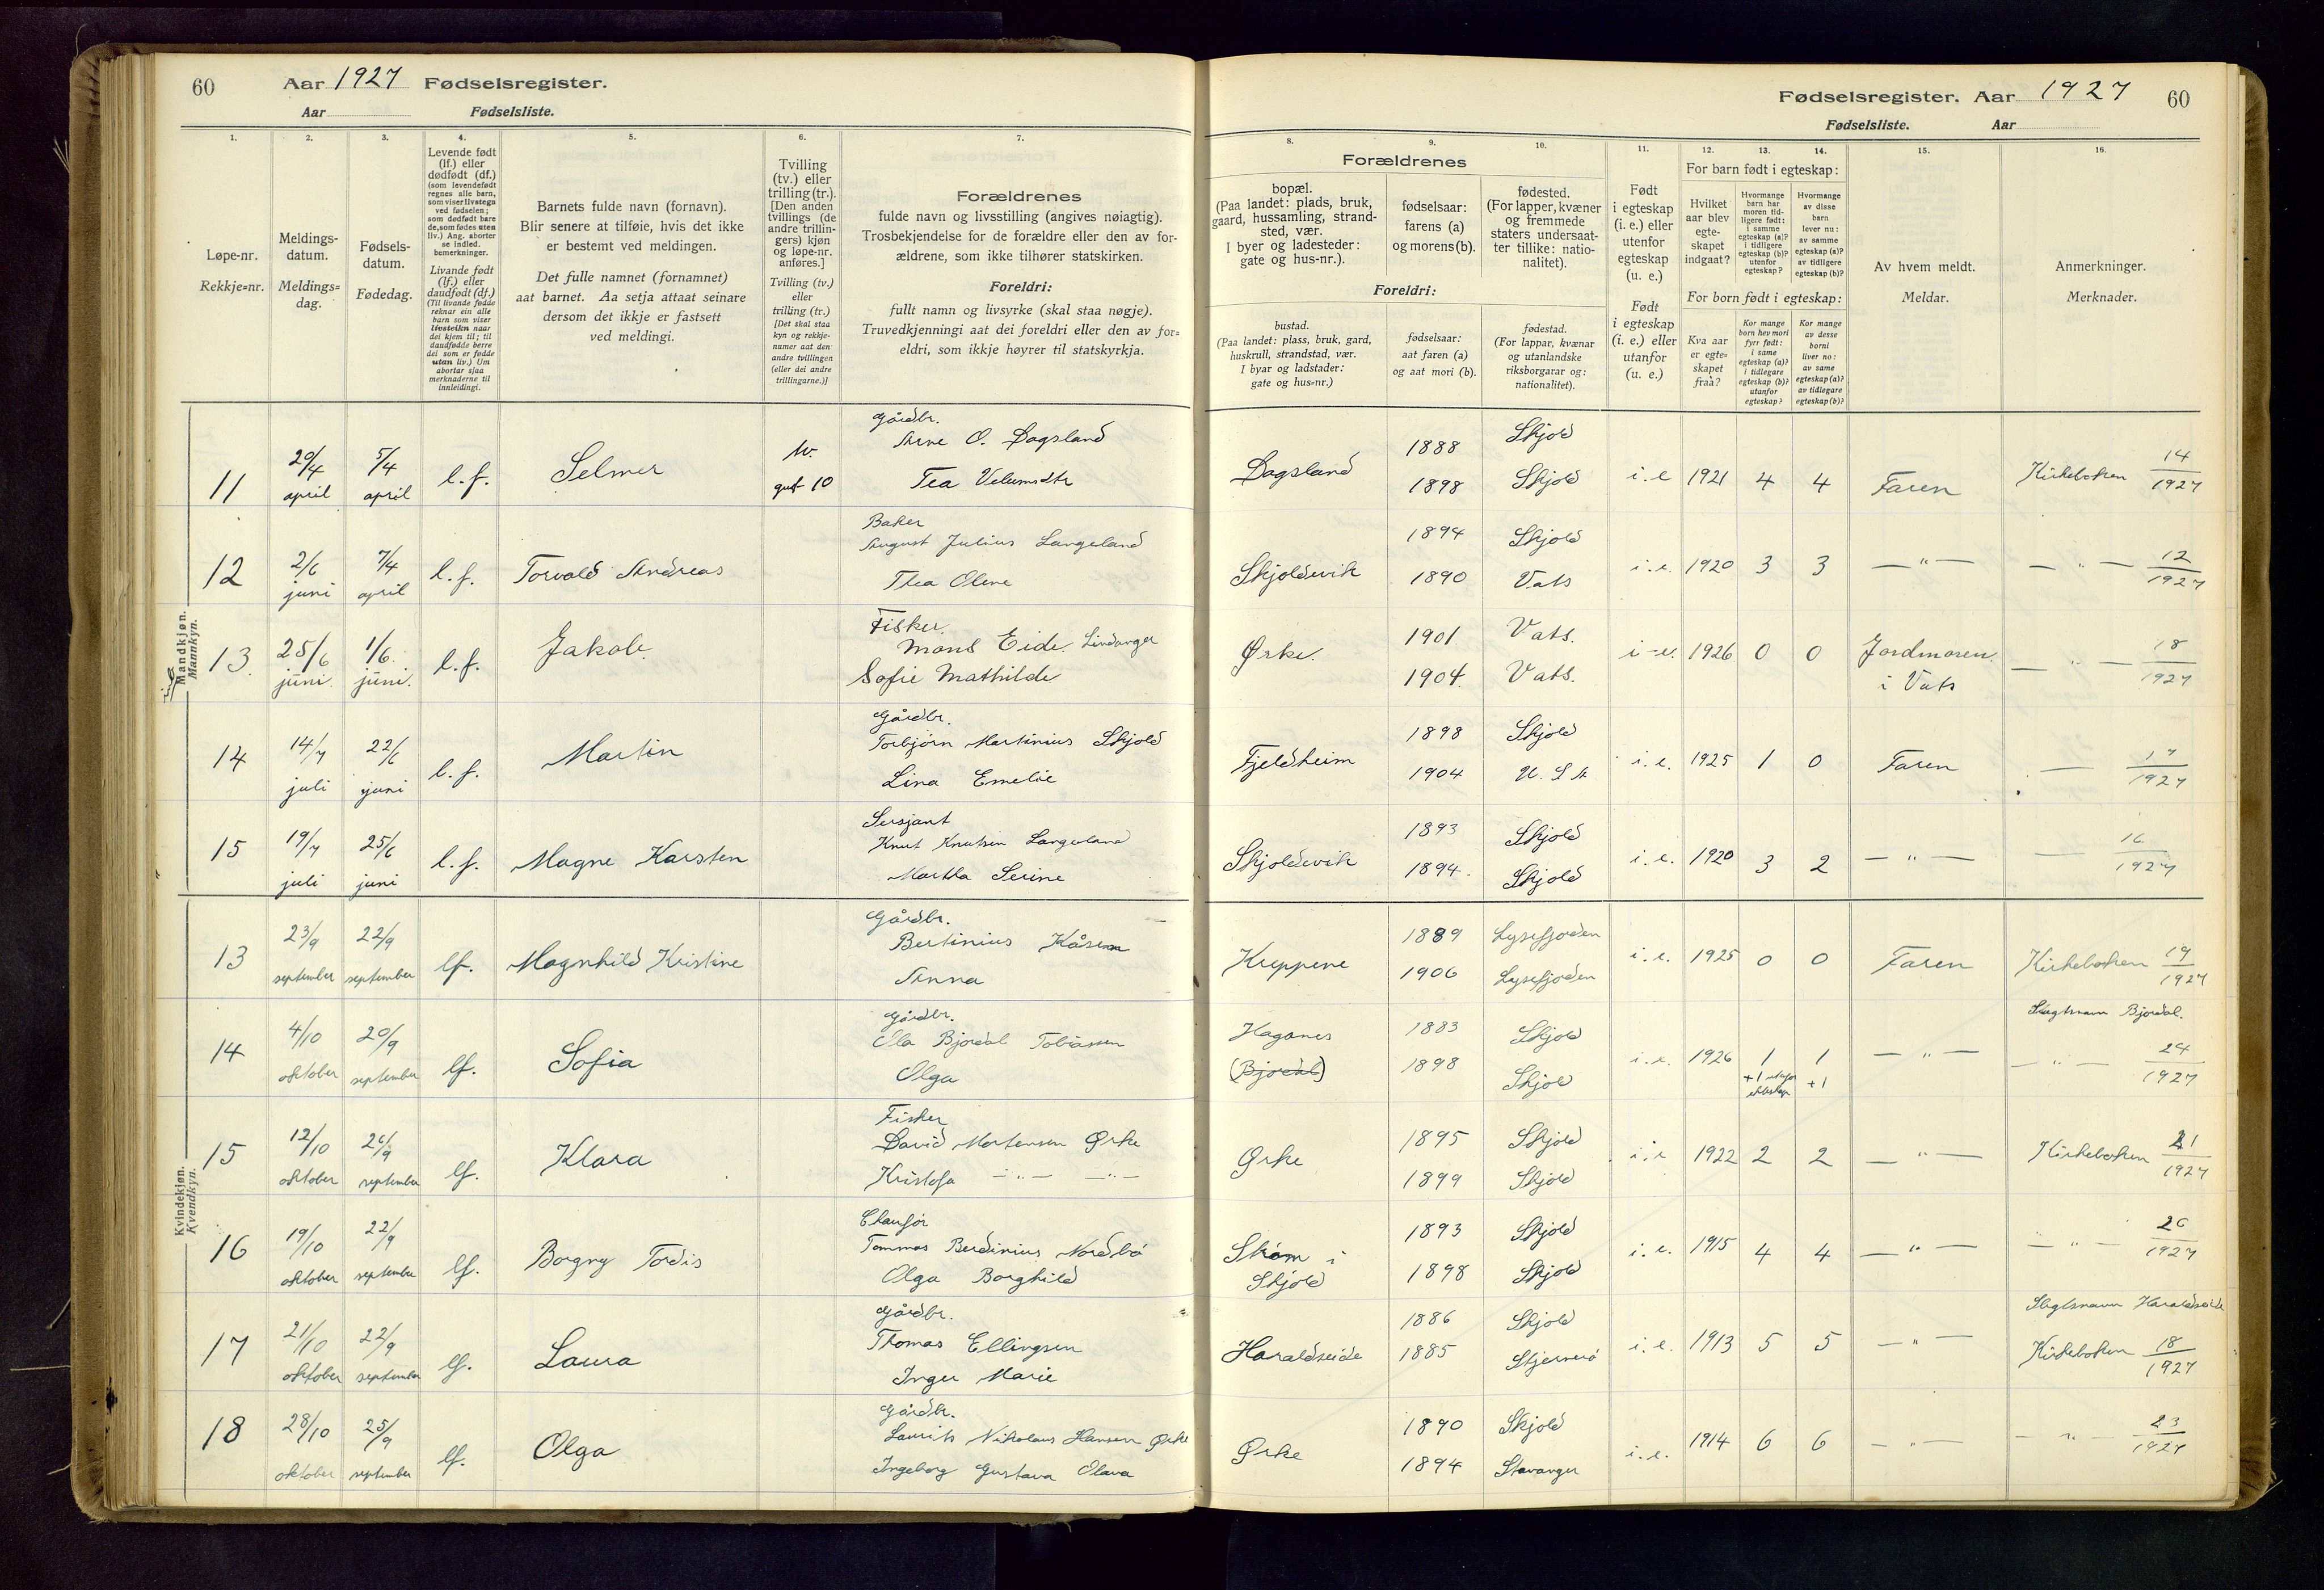 60 Aar 1927 Fødselsregister.
Aar Fødselsliste.
Fødselsregister. Aar 1927 60
Fødselsliste. Aar
1. 2. 3. 4. 5. 6. 7.
Løpe-nr.
Rekkje=nr.
Meldings-
datum.
Meldings=
dag.
Fødsels-
datum.
Fødedag.
Levende født
(lf.) eller
dødfødt (df.)
(som levendefødt
regnes alle barn,
som viser livstegn
ved fødselen;
som dødfødt bare
de, som fødes uten
liv.) Ang. aborter
se indled.
bemerkninger.
Livande fødd
(lf.) eller
daudfødt (df.)
(Til livande fødde
reknar ein alle
born som viser
livsteikn naar
dei kjem til; til
daudfødde berre
dei som er fødde
utan liv.) Um
abortar sjaa
merknaderne til
innleidingi.
Barnets fulde navn (fornavn).
Blir senere at tilføie, hvis det ikke
er bestemt ved meldingen.
Det fulle namnet (fornamnet)
aat barnet. Aa setja attaat seinare
dersom det ikkje er fastsett
ved meldingi.
Tvilling
(tv.) eller
trilling (tr.).
[Den anden
tvillings (de
andre trillin-
gers) kjøn
og løpe-nr.
anføres.]
Tvilling (tv.)
eller
trilling (tr.)
[Det skal staa
kyn og rekkje-
numer aat den
andre tvillingen
(eller dei andre
trillingarne.)]
Forældrenes
fulde navn og livsstilling (angives nøiagtig).
Trosbekjendelse for de forældre eller den av for-
ældrene, som ikke tilhører statskirken.
Foreldri:
fullt namn og livsyrke (skal staa nøgje).
Truvedkjenningi aat dei foreldri eller den av for=
eldri, som ikkje høyrer til statskyrkja.
8. 9. 10. 11. 12. 13. 14. 15. 16.
Forældrenes
bopæl.
(Paa landet: plads, bruk,
gaard, hussamling, strand-
sted, vær.
I byer og ladesteder:
gate og hus-nr.).
fødselsaar:
farens (a)
og morens (b).
fødested.
(For lapper, kvæner
og fremmede
staters undersaat-
ter tillike: natio-
nalitet).
Foreldri:
bustad.
(Paa landet: plass, bruk, gard,
huskrull, strandstad, vær.
I byar og ladstader:
gate og hus=nr.)
fødselsaar:
aat faren (a)
og aat mori (b).
fødestad.
(For lappar, kvænar
og utanlandske
riksborgarar og:
nationalitet).
Født
i egteskap
(i. e.) eller
utenfor
egteskap
(u. e.)
Født
i egteskap
(i. e.) eller
utanfor
(u. e.)
For barn født i egteskap:
Hvilket
aar blev
egte-
skapet
indgaat?
Hvormange
barn har
moren tid-
ligere født:
i samme
egteskap (a)?
i tidligere
egteskap (b)?
utenfor
egteskap?
Hvormange
av disse
barn
lever nu:
av samme
egteskap (a)?
av tidligere
egteskap (b)?
For born født i egteskap:
Kva aar
er egte=
skapet
fraa?
Kor mange
born hev mori
fyrr født:
i same
egteskap (a)?
i tidlegare
egteskap (b)?
utanfor
egteskap?
Kor mange
av desse
borni
liver no:
av same
egteskap (a)?
av tidlegare
egteskap (b)?
Av hvem meldt.
Meldar.
Anmerkninger.
Merknader.
Mandkjøn.
Mannkyn.
11 20/4 april 5/4 april l. f. Selmer tv. gut 10 Gårdbr. Arne O. Dagsland
Tea Velumsdtr
Dagsland 1888 1898 Skjold Skjold i. e 1921 4 4 Faren Kirkeboken 14/1927
12 2/6 juni 7/4 april l. f. Torvald Andreas Baker August Julius Langeland
Thea Oline
Skjoldevik 1894 1890 Skjold Vats i. e. 1920 3 3 — " — — " — 12/1927
13. 25/6 juni. 1/6. juni. l. f. Jakob. Fisker. Mons Eide. Lindanger
Sofie Mathilde
Ørke. 1901 1904. Vats. Vats. i-e. 1926 0 0 Jordmoren i Vats — " — 18/1927
14 14/7 juli 22/6 juni l. f. Martin Gårdbr. Torbjørn Martinius Skjold
Lina Emelie
Fjeldheim 1898 1904 Skjold U. S A i. e. 1925 1 0 Faren — 17/1927
15 19/7 juli 25/6 juni l. f. Magne Karsten Sersjant Knut Knutsen Langeland
Martha Serine
Skjoldevik 1893 1894. Skjold Skjold i. e. 1920 3 2 — " — — 16/1927
Kvindekjøn.
Kvendkyn.
13 23/9 september 22/9 september lf. Magnhild Kristine Gårdbr. Bertinius Kåsen
Anna
Kreppene 1889 1906 Lysefjorden Lysefjorden i. e. 1925 0 0 Faren Kirkeboken 19/1927
14 4/10 oktober 20/9 september lf. Sofia Gårdbr. Ola Bjordal Tobiassen
Olga
Haganes (Bjordal) 1883 1898 Skjold Skjold i. e. 1926 1 +1 1 +1 — " — Slegtsnavn Bjordal. — " — 24/1927
15 12/10 oktober 26/9 september lf. Klara Fisker David Mortensen Ørke
Kristofa — " — — " —
Ørke 1895 1899 Skjold Skjold i. e 1922 2 2 — " — Kirkeboken 21/1927
16 19/10 oktober 22/9 september lf. Borgny Tordis Chaufør Tommas Berdinius Nordbø
Olga Borghild
Skåm i Skjold 1893 1898 Skjold Skjold i. e. 1915 4 4 — " — — " — 26/1927
17 21/10 oktober 22/9 september lf. Laura Gårdbr. Thomas Ellingsen
Inger Marie
Haraldseide 1886 1885 Skjold Stjernerø i. e. 1913 5 5 — " — Slegtsnavn Haraldseide Kirkeboken 18/1927
18 28/10 oktober 25/9 september lf. Olga Gårdbr. Laurits Nikolaus Hansen Ørke
Ingeborg Gustava Olava
Ørke 1890 1894 Skjold Stavanger i. e. 1914 6 6 — " — — " — 23/1927